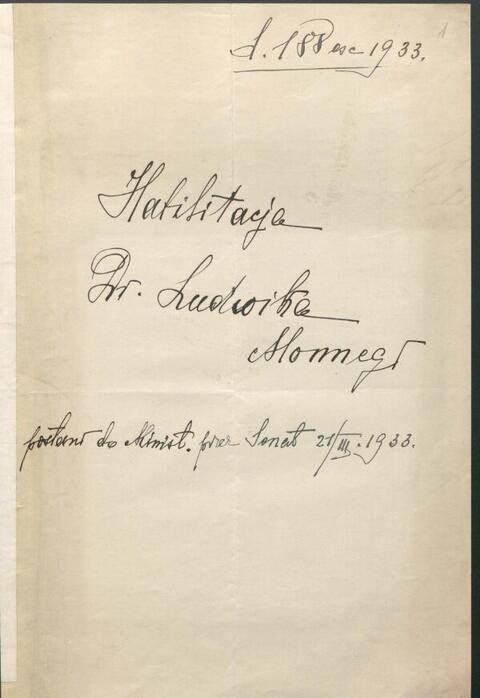 L. 188 1933.
1
Habilitacja
Dr. Ludwika
Monnégo
do Minist. przez Senat 21/III. 1933.